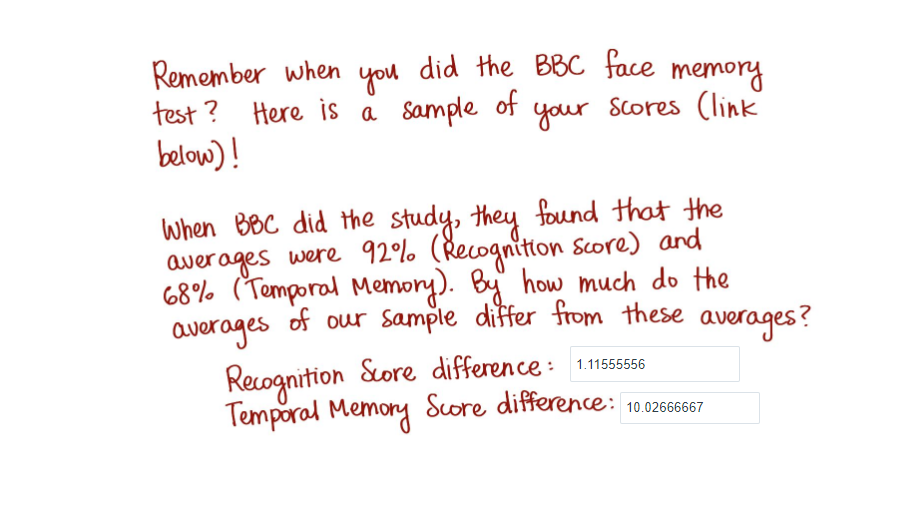 Remember when you did the BBC face memory
test? Here is a sample of your scores (link
below)!
When BBC did the study, they found that the
averages were 92% (Recognition Score) and
68% (Temporal Memory). By how much do the
averages of our sample differ from these averages?
Recognition Score difference: 1.11555556
Temporal Memory Score difference: 10.02666667